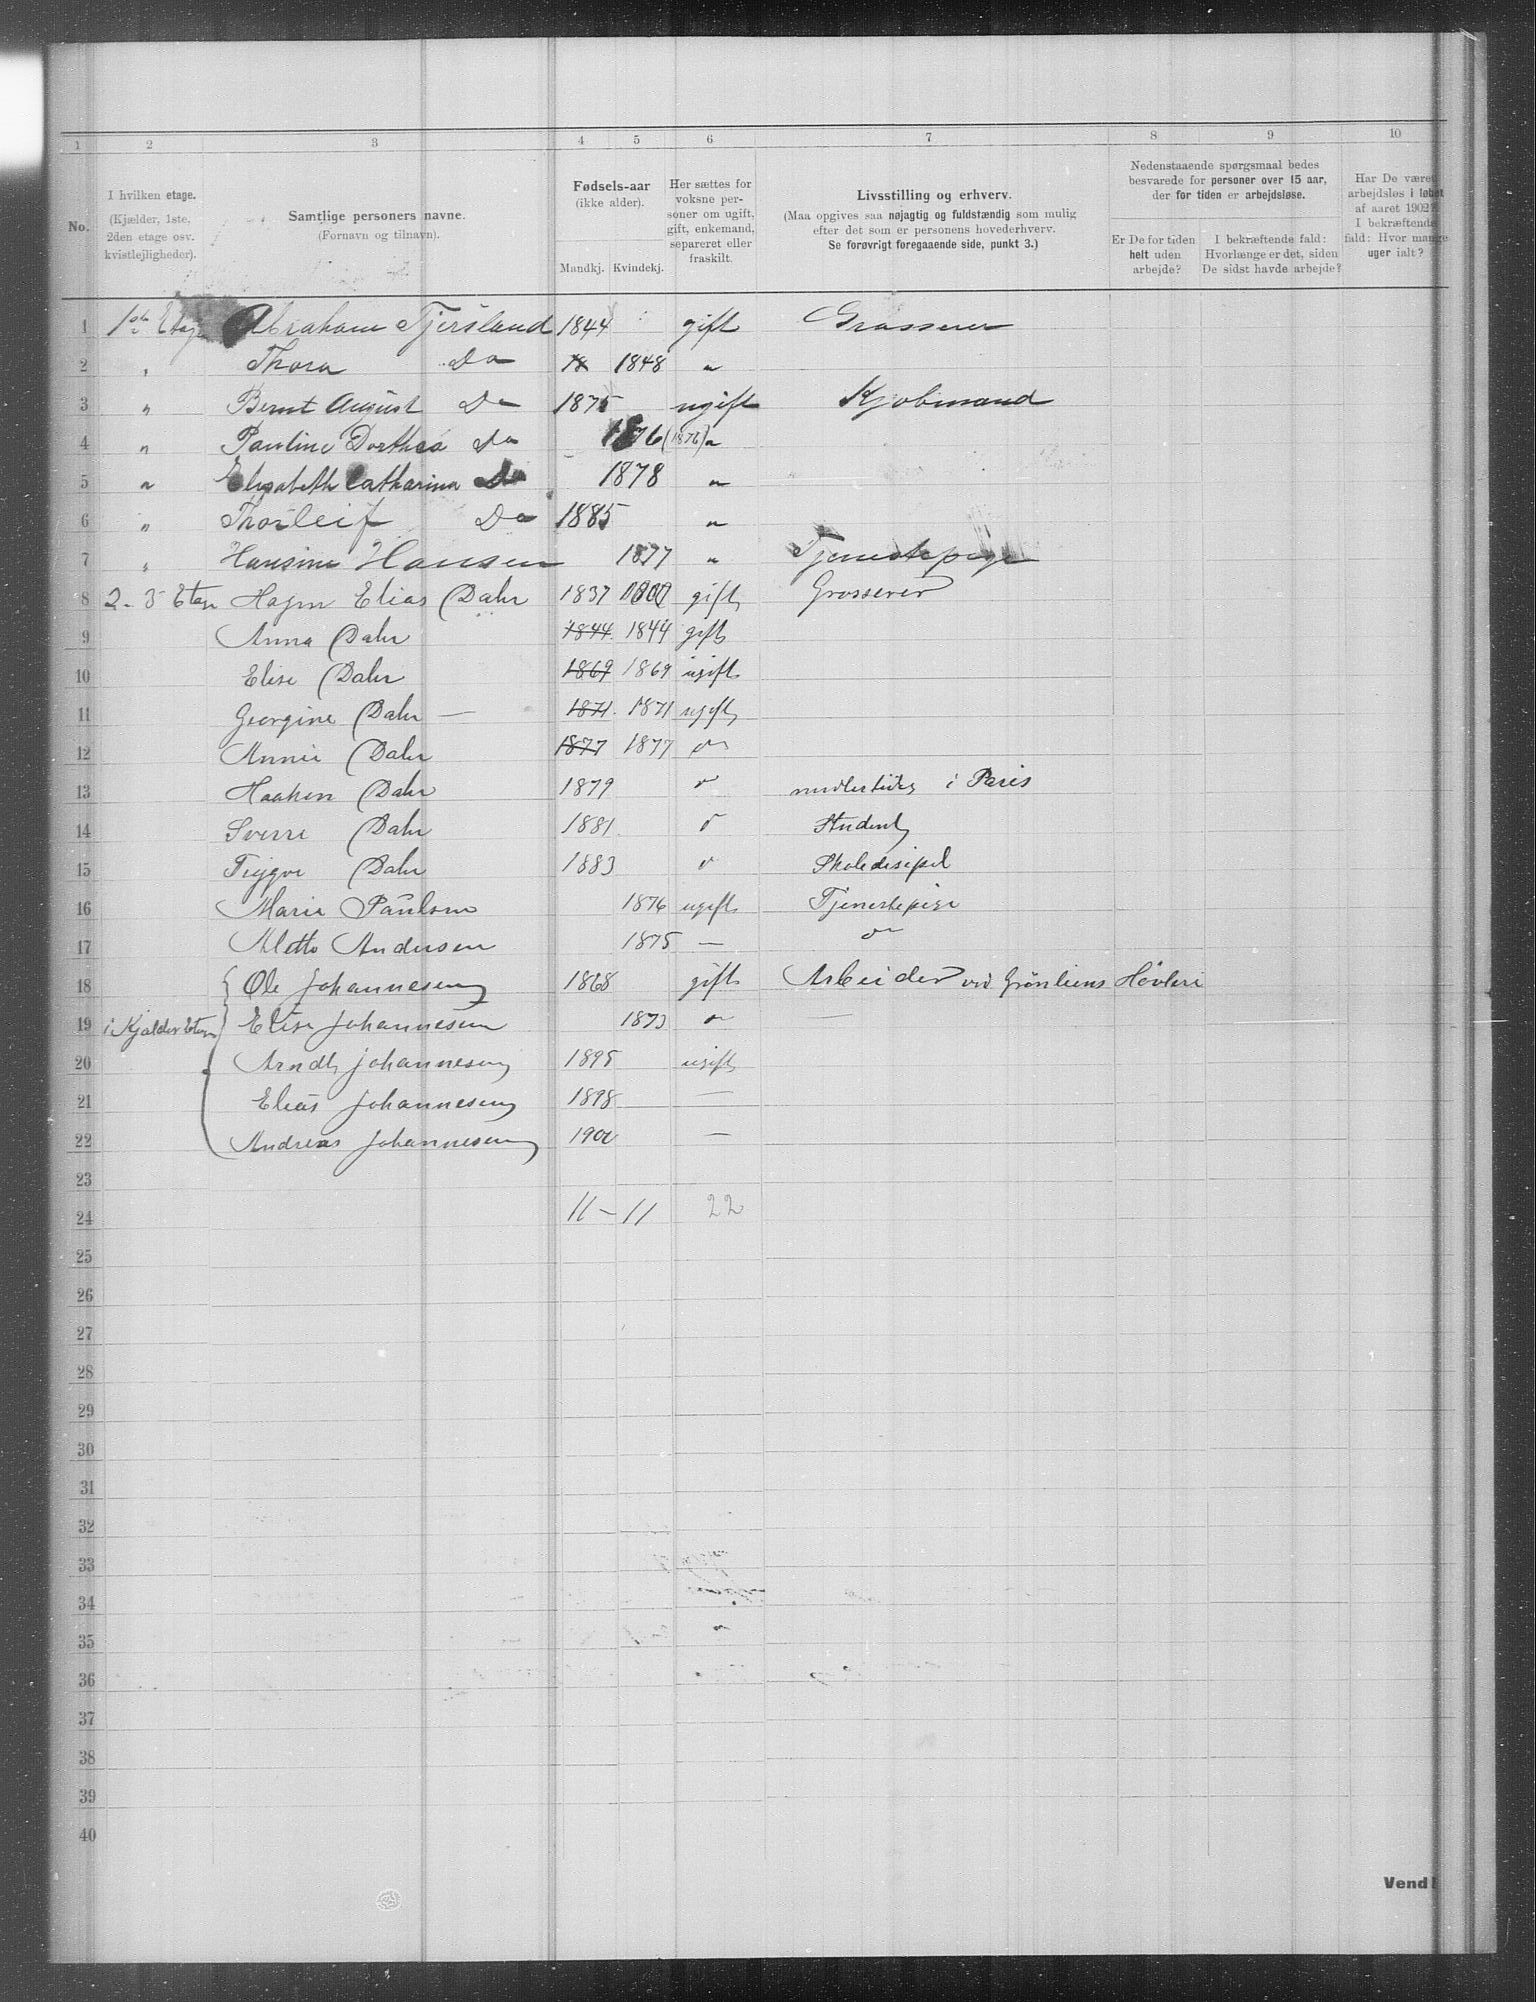 1 2 3 4 5 6 7 8 9 10
No.
I hvilken etage.
(Kjælder, 1ste,
2den etage osv.
kvistlejligheder).
Samtlige personers navne.
(Fornavn og tilnavn).
Fødsels-aar
(ikke alder).
Mandkj. Kvindekj.
Her sættes for
voksne per-
soner om ugift,
gift, enkemand,
separeret eller
fraskilt.
Livsstilling og erhverv.
(Maa opgives saa nøjagtig og fuldstændig som mulig
efter det som er personens hovederhverv.
Se forøvrigt foregaaende side, punkt 3.)
Nedenstaaende spørgsmaal bedes
besvarede for personer over 15 aar,
der for tiden er arbejdsløse.
Er De for tiden
helt uden
arbejde?
I bekræftende fald:
Hvorlænge er det, siden
De sidst havde arbejde?
Har De været
arbejdsløs i løbet
af aaret 1902?
I bekræftende
fald: Hvor mange
uger ialt?
1 1ste Etage Abraham Tjersland 1844 gift Grosserer
2 " Thora Do 18 1848 "
3 " Bernt August Do 1875 ugift Kjøbmand
4 " Pauline Dorthea Do 1876 (1876) "
5 " Elisabeth Catharina Do 1878 "
6 " Thorleif Do 1885 "
7 " Hansine Hansen 1877 " Tjenestepige
8 2-3 Etage Hagen Elias Dahr 1837 gift Grosserer
9 Anna Dahr 1844 1844 gift
10 Elise Dahr 1869 1869 ugift
11 Georgine Dahr — 1871 1871 ugift
12 Annie Dahr 1877 1877 "
13 Haakon Dahr 1879 " midlertidig i Paris
14 Sverre Dahr 1881 " Student
15 Trygve Dahr 1883 " Skoledisipel
16 Marie Paulsen 1876 ugift Tjenestepige
17 Aletta Andersen 1875 — "
18 Ole Johannesen 1868 gift Arbeider ved Grønliens Høvleri
19 i Kjælder Etage Elise Johannesen 1873 " —
20 Arndt Johannesen 1895 ugift
21 Elias Johannesen 1898 —
22 Andreas Johannesen 1900 —
23
24 11 – 11 22
25
26
27
28
29
30
31
32
33
34
35
36
37
38
39
40
Vend!